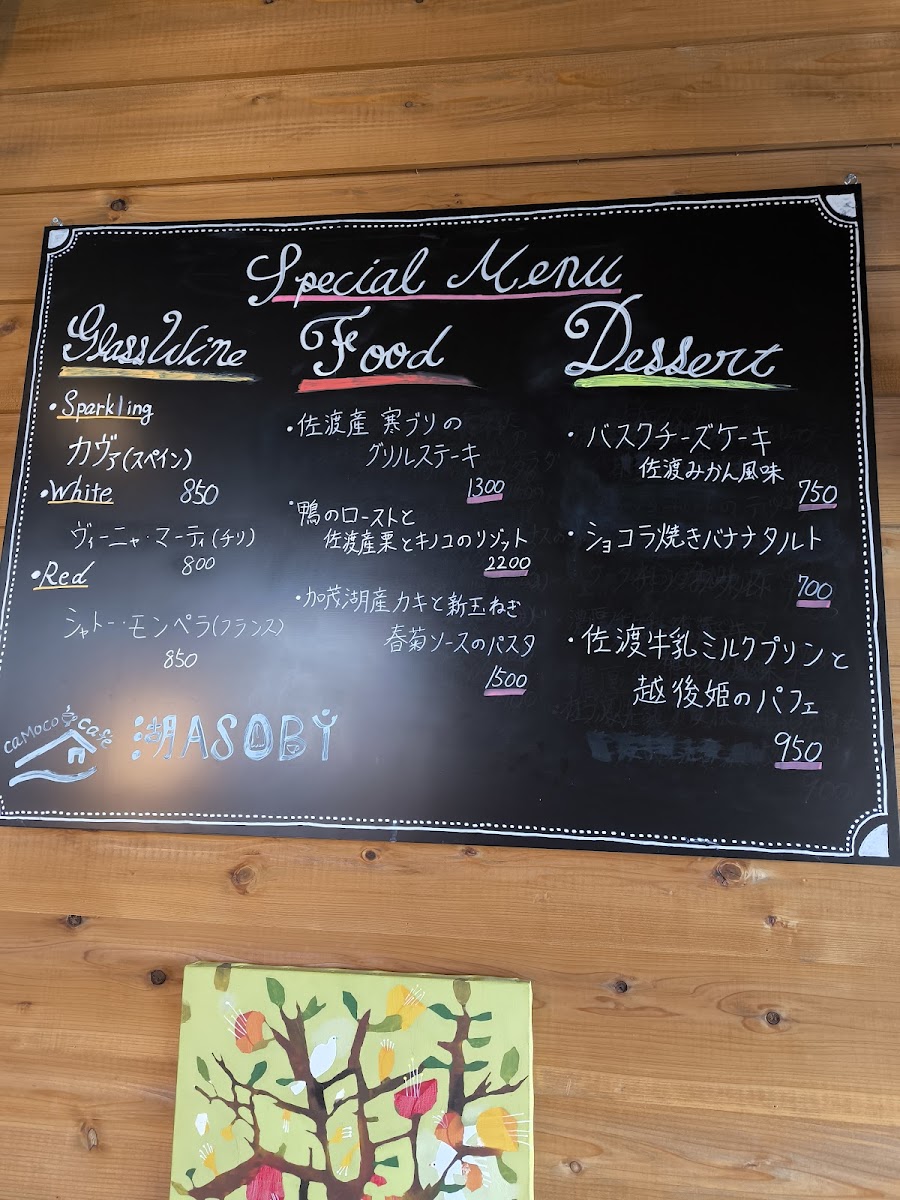 Special Menu
Glass Wine
・Sparkling
カヴァ(スペイン)
850
・White
ヴィーニャ・マーティ(チリ)
800
・Red
シャトー・モンペラ(フランス)
850
Food
・佐渡産 寒ブリの
グリルステーキ
1300
・鴨のローストと
佐渡産栗とキノコのリゾット
2200
・加茂湖産カキと新玉ねぎ
春菊ソースのパスタ
1500
Dessert
・バスクチーズケーキ
佐渡みかん風味
750
・ショコラ焼きバナナタルト
700
・佐渡牛乳ミルクプリンと
越後姫のパフェ
950
caMoco cafe
湖ASOBi